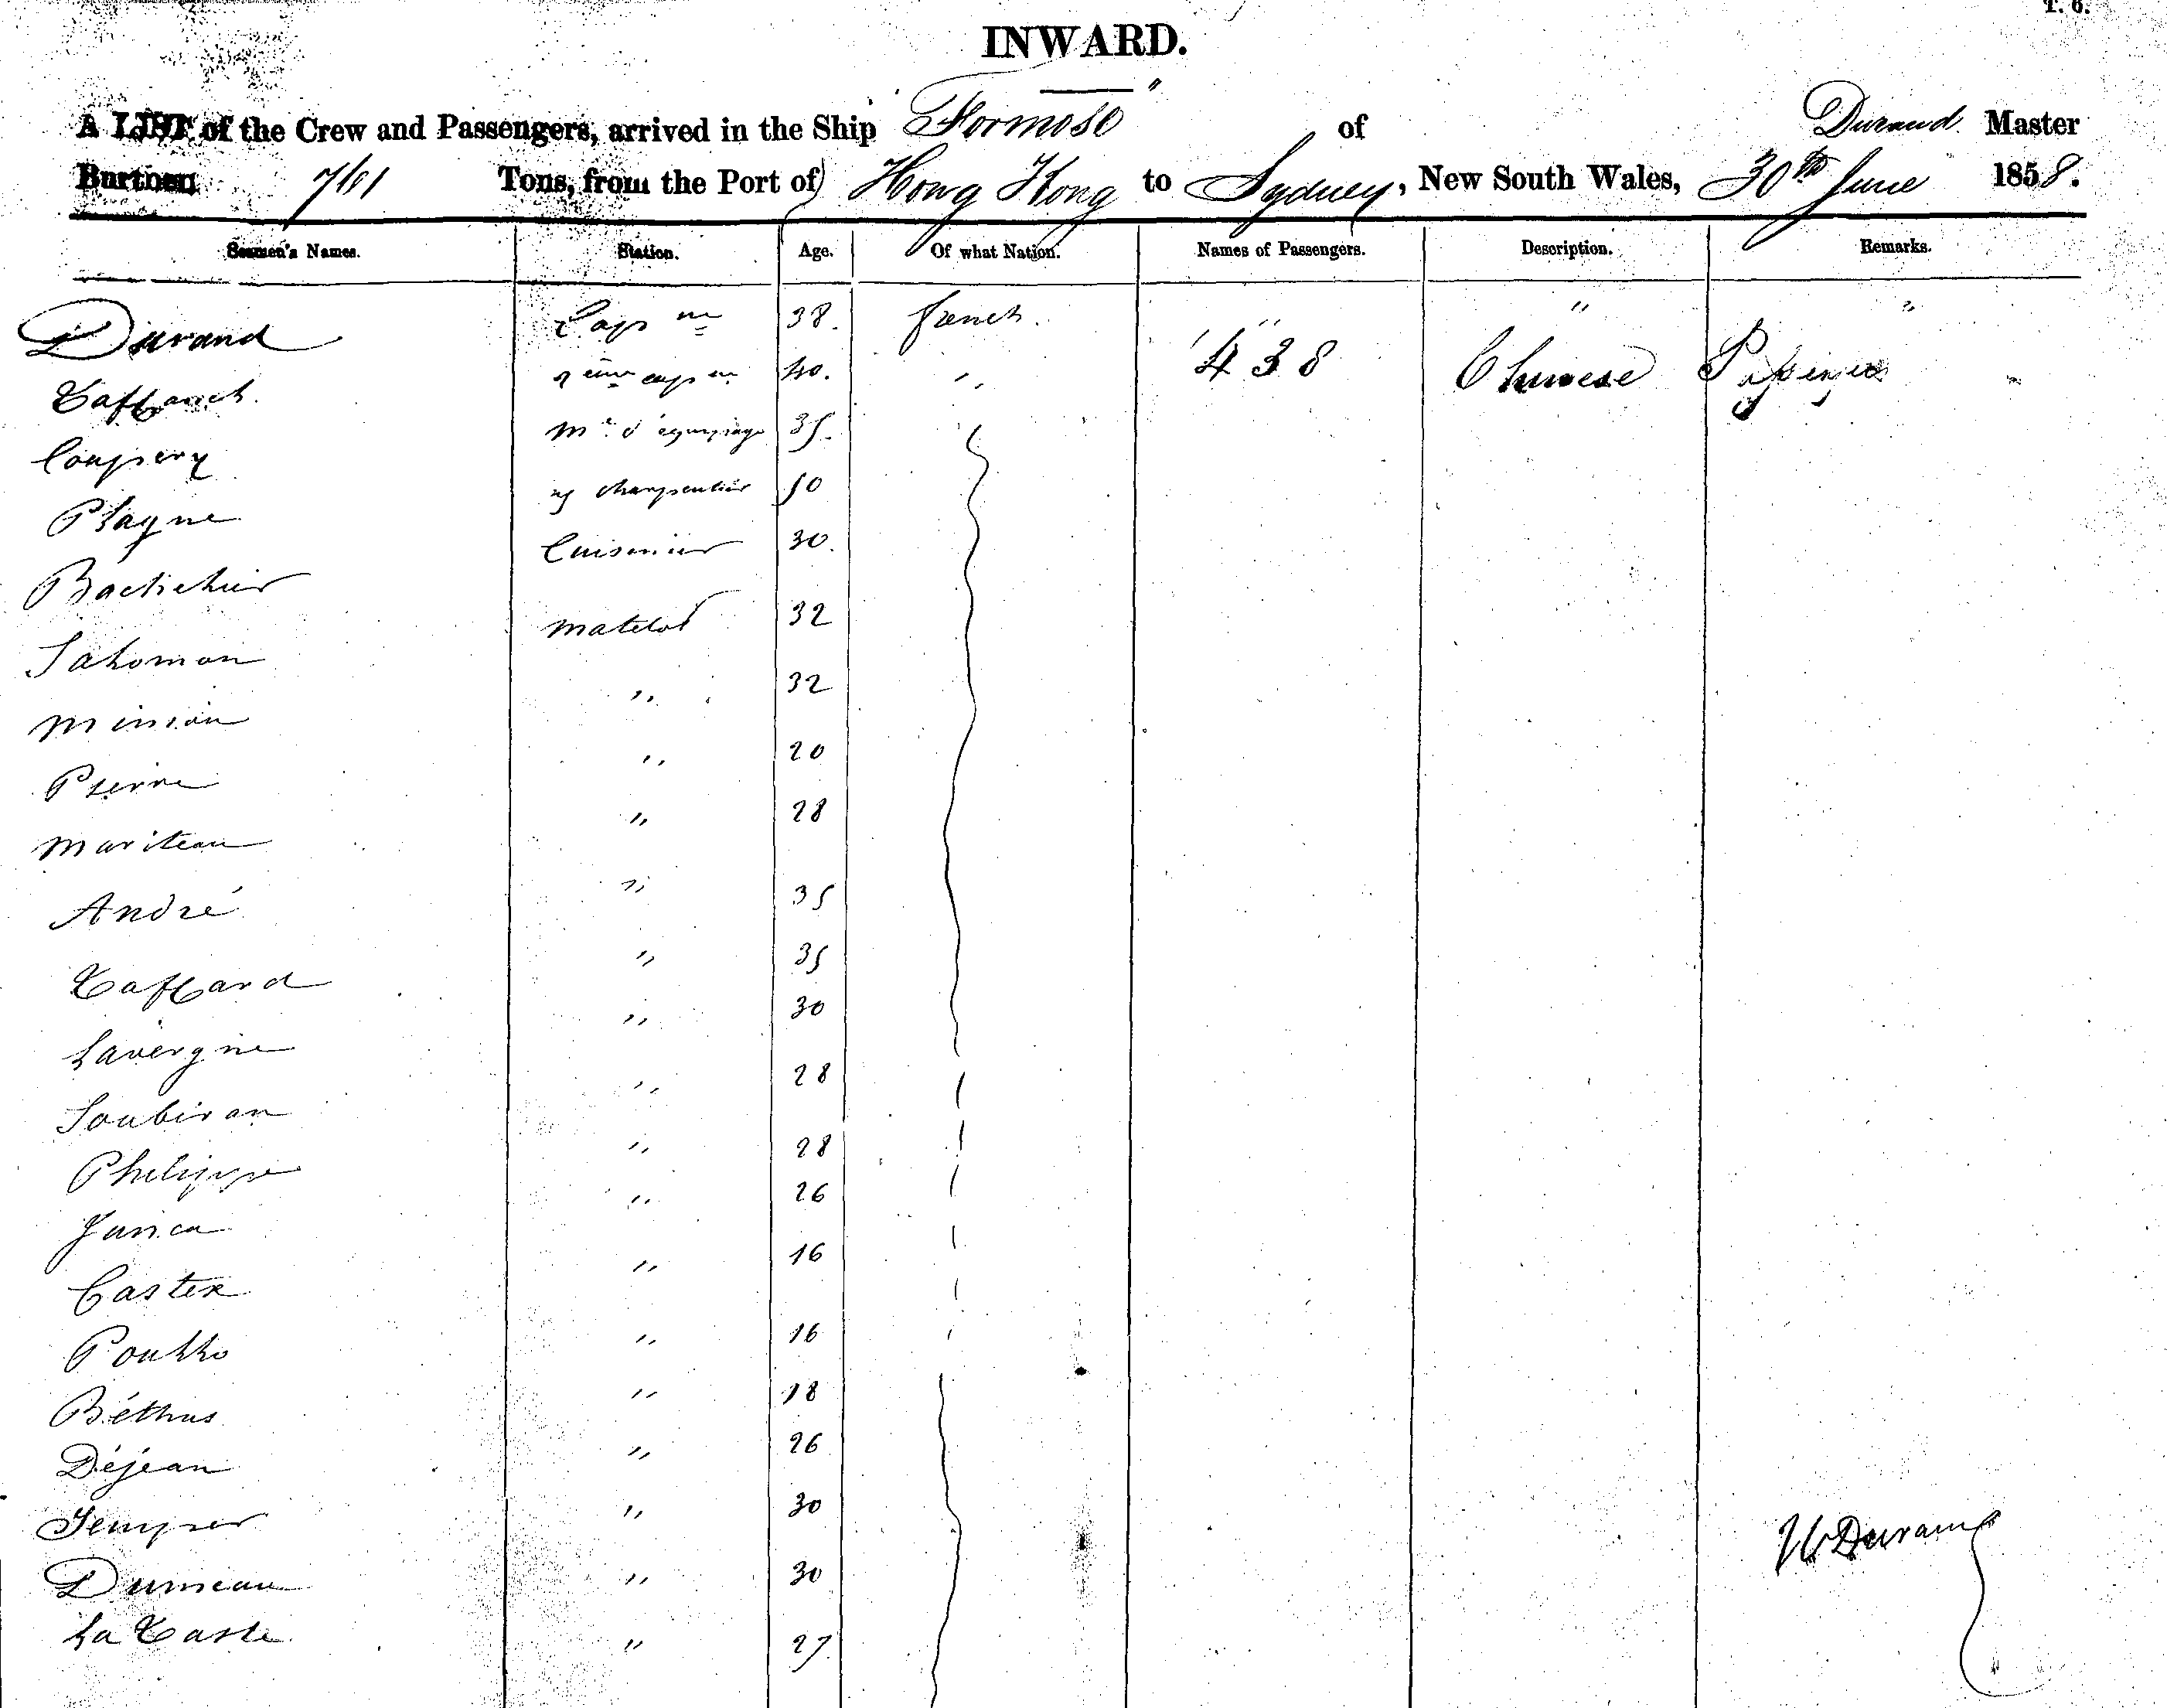 T. 6.
INWARD.
A LIST of the Crew and Passengers, arrived in the Ship "Formose" of Durand Master
Burthen 761 Tons, from the Port of Hong Kong to Sydney, New South Wales, 30th June 1858.
Seamen's Names. Station. Age. Of what Nation. Names of Passengers. Description. Remarks.
Durand Capne 38. french. " " "
Taffanel 2eme capne 40. " 438 Chinese
Coupery Me d'equipage 35.
Plagne charpentier 50
Cuisinier 30.
Salomon matelot 32
" 32
Pierre " 20
Mariteau " 28
André " 35
Taffard " 35
Lavergne " 30
Soubiran " 28
Philippe " 28
" 26
Castex " 16
" 16
Béthus " 18
Déjean " 26
" 30
" 30
La Taste " 27.
Durand